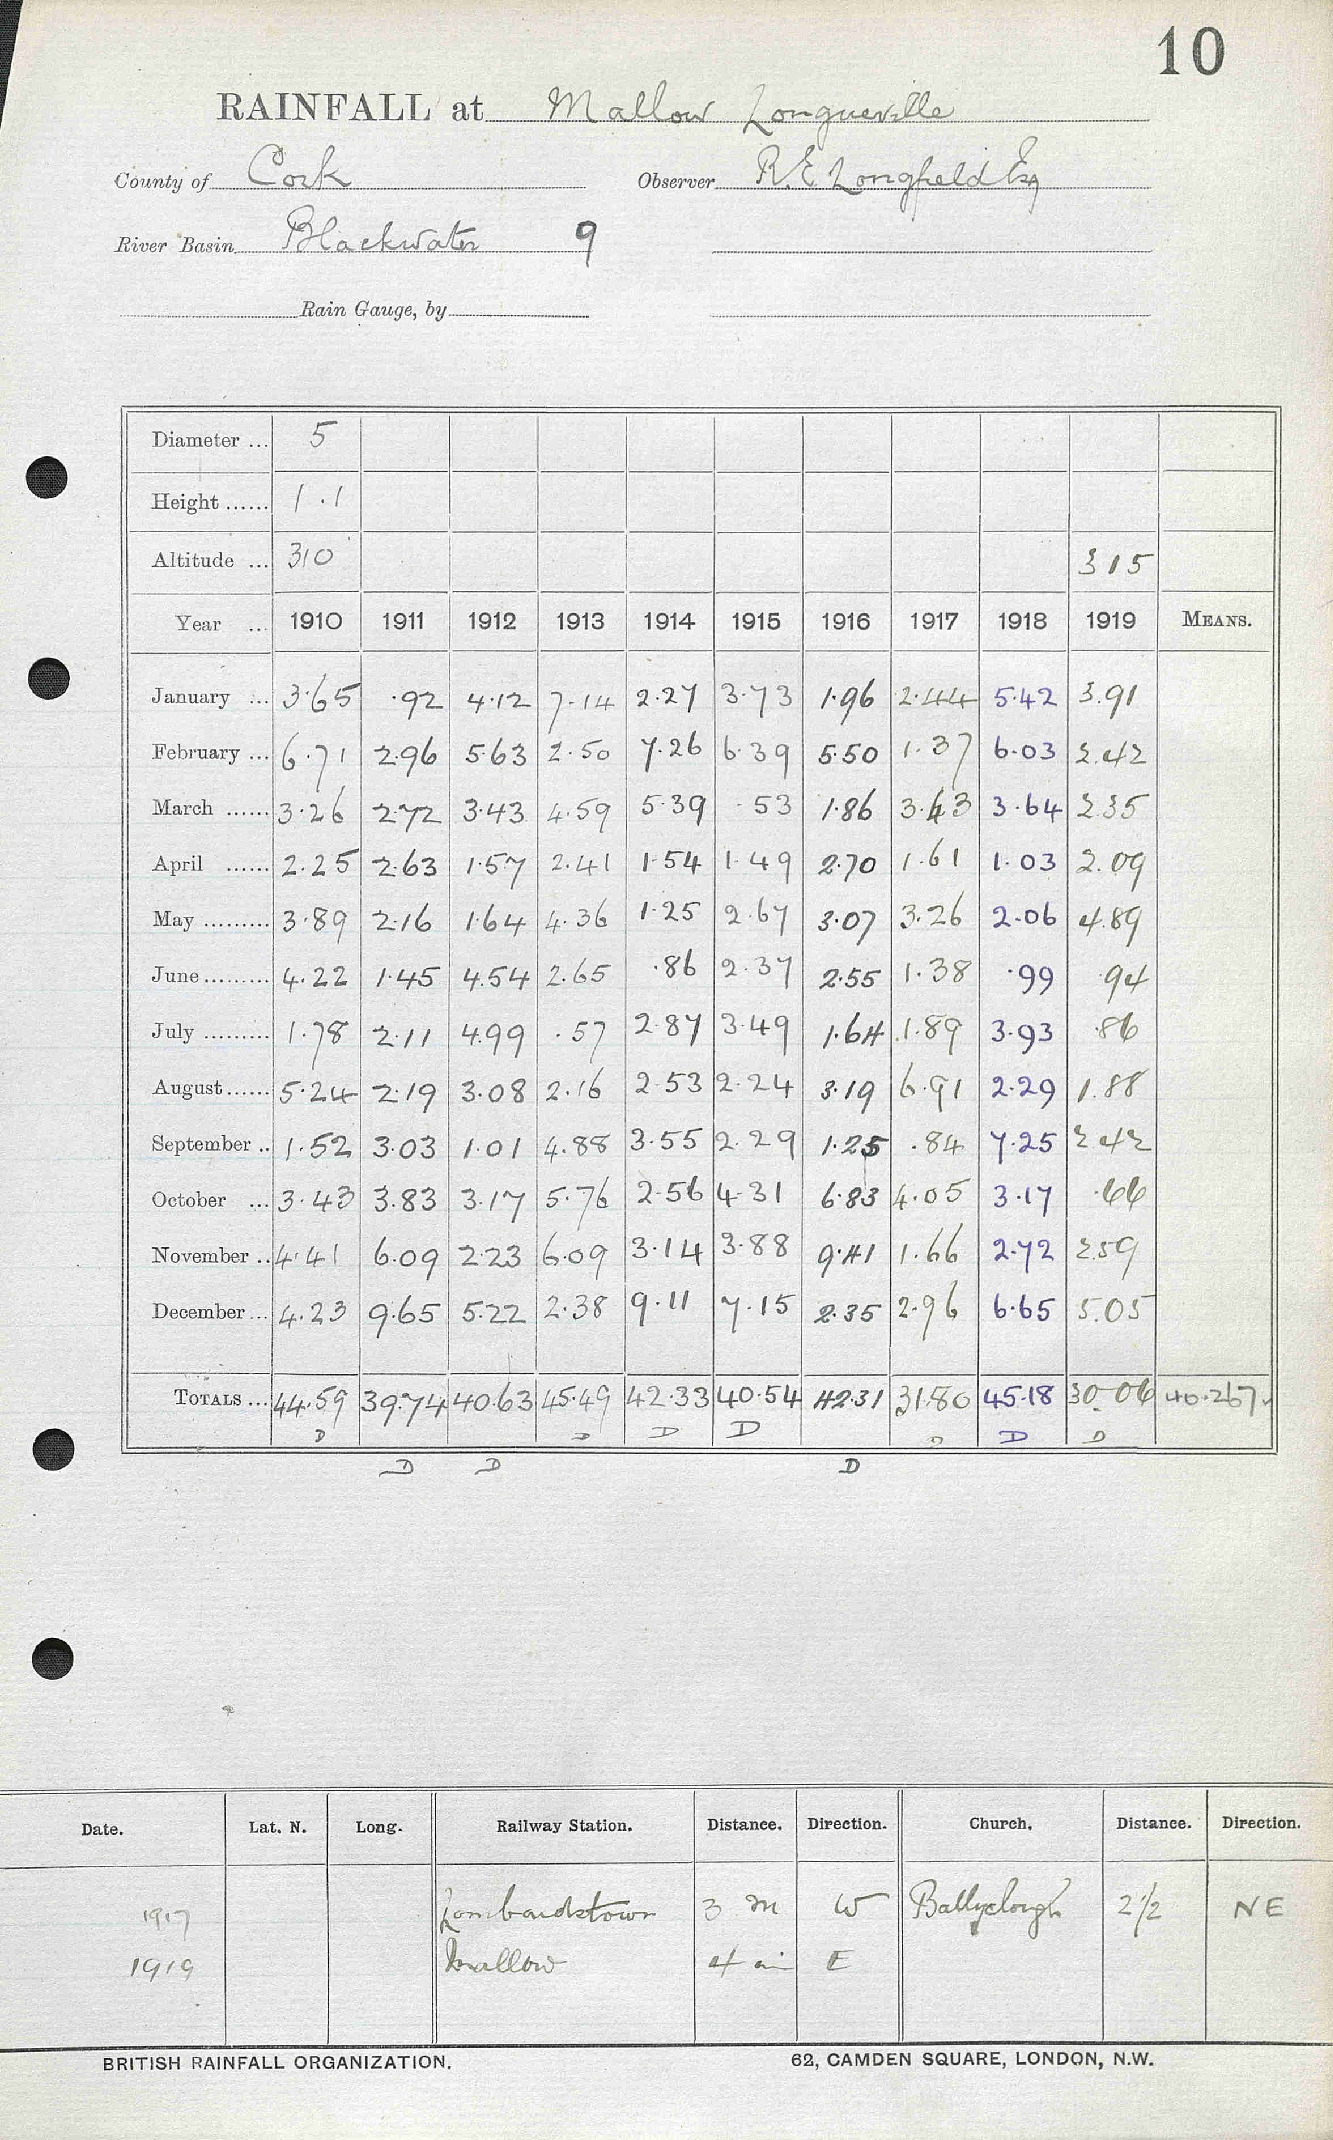 10
RAINFALL at Mallow Longueville
County of Cork Observer R. E. Longfield Esq
River Basin Blackwater 9
Rain Gauge, by
Diameter ... 5
Height ...... 1.1
Altitude ... 310 315
Year ... 1910 1911 1912 1913 1914 1915 1916 1917 1918 1919 MEANS.
January ... 3.65 .92 4.12 7.14 2.27 3.73 1.96 2.44 5.42 3.91
February ... 6.71 2.96 5.63 2.50 7.26 6.39 5.50 1.37 6.03 2.42
March ...... 3.26 2.72 3.43 4.59 5.39 .53 1.86 3.43 3.64 2.35
April ...... 2.25 2.63 1.57 2.41 1.54 1.49 2.70 1.61 1.03 2.09
May ......... 3.89 2.16 1.64 4.36 1.25 2.67 3.07 3.26 2.06 4.89
June ......... 4.22 1.45 4.54 2.65 .86 2.37 2.55 1.38 .99 .94
July ......... 1.78 2.11 4.99 .57 2.87 3.49 1.64 1.89 3.93 .86
August ...... 5.24 2.19 3.08 2.16 2.53 2.24 3.19 6.91 2.29 1.88
September .. 1.52 3.03 1.01 4.88 3.55 2.29 1.25 .84 7.25 2.42
October ... 3.43 3.83 3.17 5.76 2.56 4.31 6.83 4.05 3.17 .66
November .. 4.41 6.09 2.23 6.09 3.14 3.88 9.41 1.66 2.72 2.59
December ... 4.23 9.65 5.22 2.38 9.11 7.15 2.35 2.96 6.65 5.05
TOTALS ... 44.59 39.74 40.63 45.49 42.33 40.54 42.31 31.80 45.18 30.06 40.267
D D D D D D D
D D D
Date. Lat. N. Long. Railway Station. Distance. Direction. Church. Distance. Direction.
1917 Lombardstown 3 m W Ballyclough 2 1/2 NE
1919 Mallow 4 mi E
BRITISH RAINFALL ORGANIZATION. 62, CAMDEN SQUARE, LONDON, N.W.